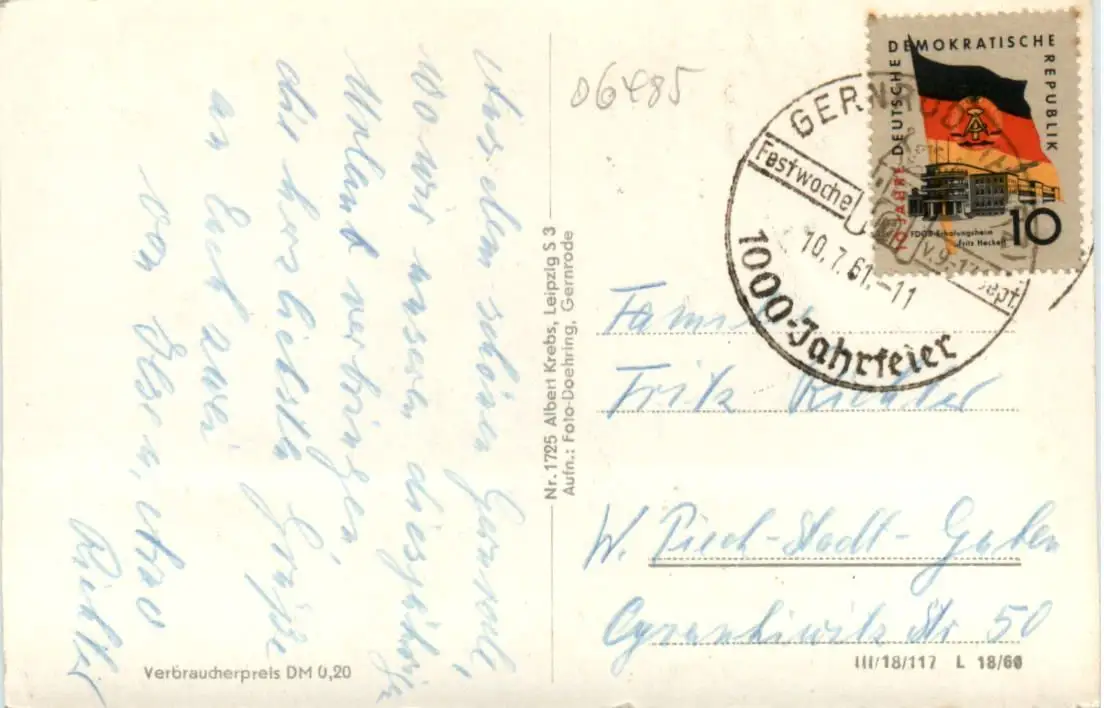 Aus dem schönen Gernrode,
wo wir unseren diesjährigen
Urlaub verbringen,
die herzlichsten Grüße
an Euch zwei
von Elsen, Otto
Richter
06485
Nr. 1725 Albert Krebs, Leipzig S 3
Aufn.: Foto-Doehring, Gernrode
Verbraucherpreis DM 0,20
10 JAHRE DEUTSCHE DEMOKRATISCHE REPUBLIK
FDGB-Erholungsheim
Fritz Heckert
10
GERNRODE
Festwoche
v. 9.-17. Sept.
10.7.61.-11
1000-Jahrfeier
Familie
Fritz Richter
W. Pieck-Stadt-Guben
Cyrankiewitz Str 50
III/18/117 L 18/60